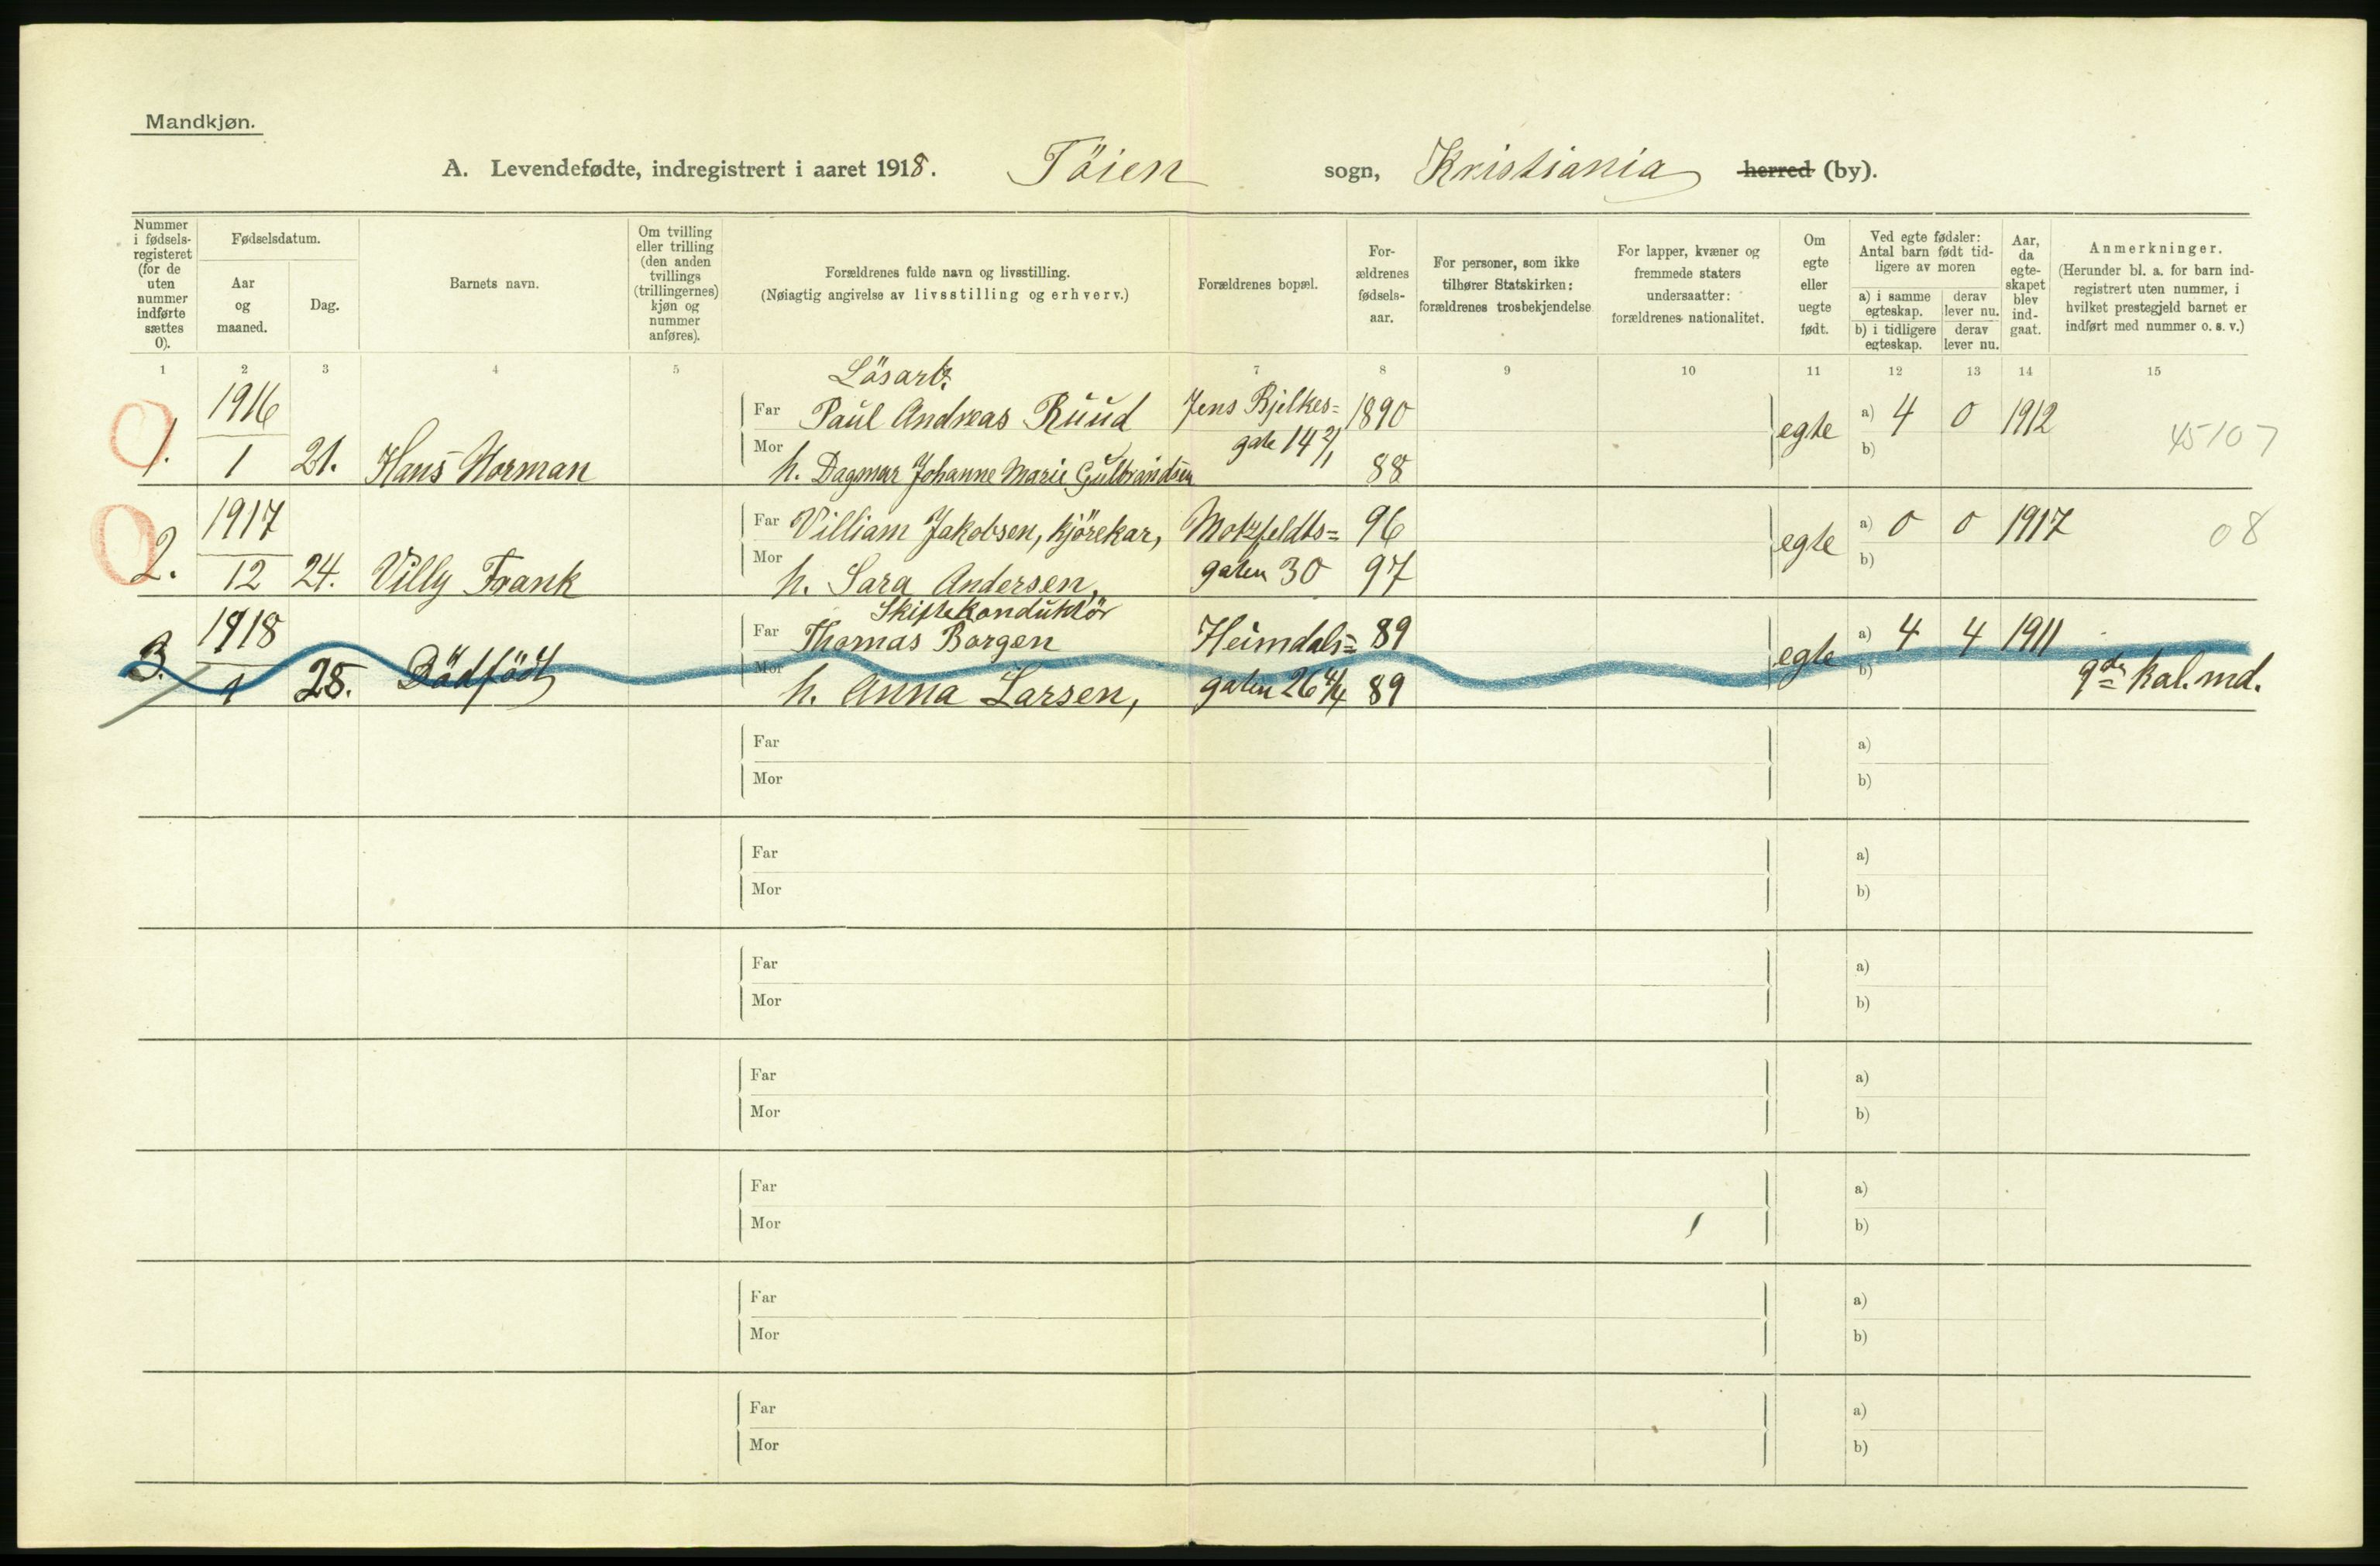 Mandkjøn.
A. Levendefødte, indregistrert i aaret 1918. Töien sogn, Kristiania herred (by).
Nummer i fødsels-registeret (for de uten nummer indførte sættes 0).
Fødselsdatum.
Aar og maaned.
Dag.
Barnets navn.
Om tvilling eller trilling (den anden tvillings (trillingernes) kjøn og nummer anføres).
Forældrenes fulde navn og livsstilling.
(Nøiagtig angivelse av livsstilling og erhverv.)
Forældrenes bopæl.
For-ældrenes fødsels-aar.
For personer, som ikke tilhører Statskirken: forældrenes trosbekjendelse
For lapper, kvæner og fremmede staters undersaatter: forældrenes nationalitet.
Om egte eller uegte født.
Ved egte fødsler: Antal barn født tid-ligere av moren
a) i samme egteskap.
derav lever nu.
b) i tidligere egteskap.
derav lever nu.
Aar, da egte-skapet blev ind-gaat.
Anmerkninger.
(Herunder bl. a. for barn ind-registrert uten nummer, i hvilket prestegjeld barnet er indført med nummer o. s. v.)
1 2 3 4 5 7 8 9 10 11 12 13 14 15
Lösarb.
1916 Far Paul Andreas Ruud Jens Bjelkes= 1890 a) 4 0 1912
1. 1 21. Hans Norman Mor h. Dagmar Johanne Marie Gulbrandsen gate 14 2/1 88 egte b) 45107
1917 Far Villiam Jakobsen, kjörekar, Motzfeldts= 96 a) 0 0 1917
2. 12 24. Villy Frank Mor h. Sara Andersen, gaten 30 97 egte b) 08
Skiftekonduktör
1918 Far Thomas Borgen Heimdals= 89 a) 4 4 1911
3. 1 28. Dödfödt Mor h. Anna Larsen, gaten 26 4/4 89 egte b) 9de kal. md.
Far a)
Mor b)
Far a)
Mor b)
Far a)
Mor b)
Far a)
Mor b)
Far a)
Mor b)
Far a)
Mor b)
Far a)
Mor b)